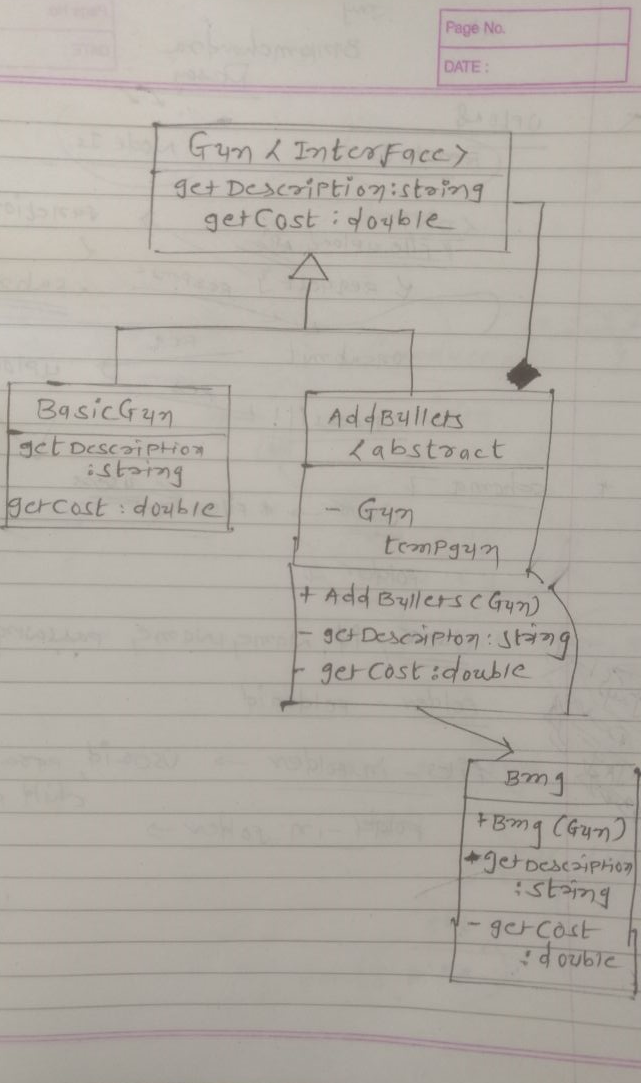 Page No.
DATE :
Gun < Interface>
getDescription:string
getCost : double
BasicGun
getDescription
:string
getCost : double
AddBullets
<abstract
- Gun
tempgun
+ AddBullets (Gun)
- getDescripton : string
- getCost : double
Bmg
+ Bmg (Gun)
+ getDescription
: string
- getCost
: double